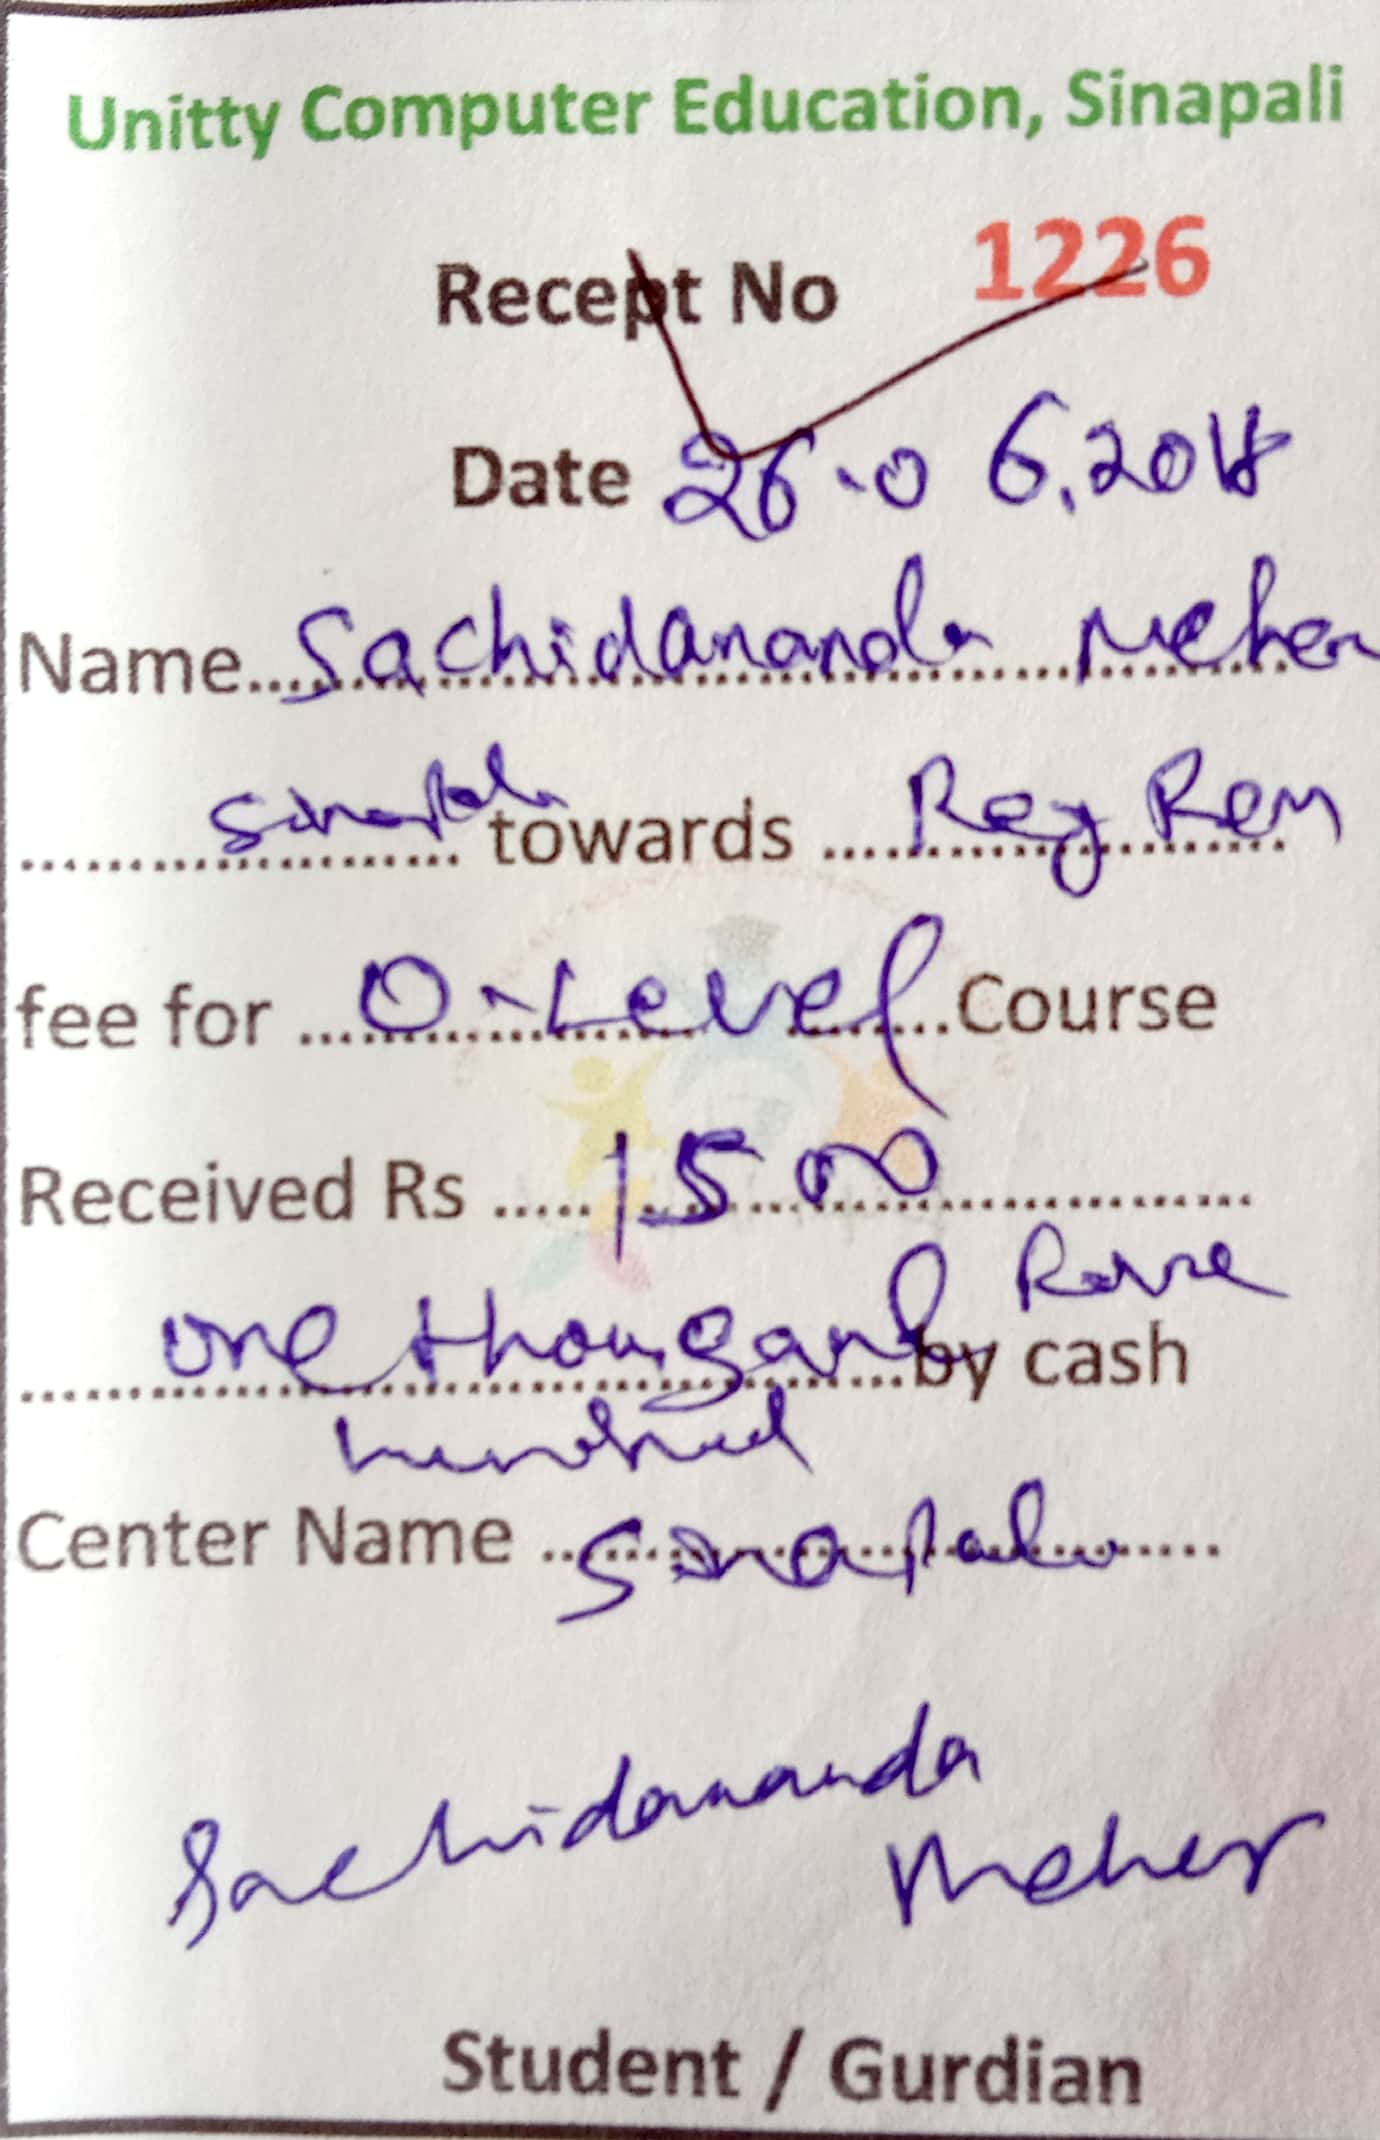 Unitty Computer Education, Sinapali
Recept No 1226
Date 26.06.2018
Name....Sachidananda Meher
Sinapali towards ....Reg
fee for ....O-Level....Course
Received Rs .....1500.....
one thousand by cash
hundred
Center Name ...Sinapali...
Sachidananda
Meher
Student / Gurdian